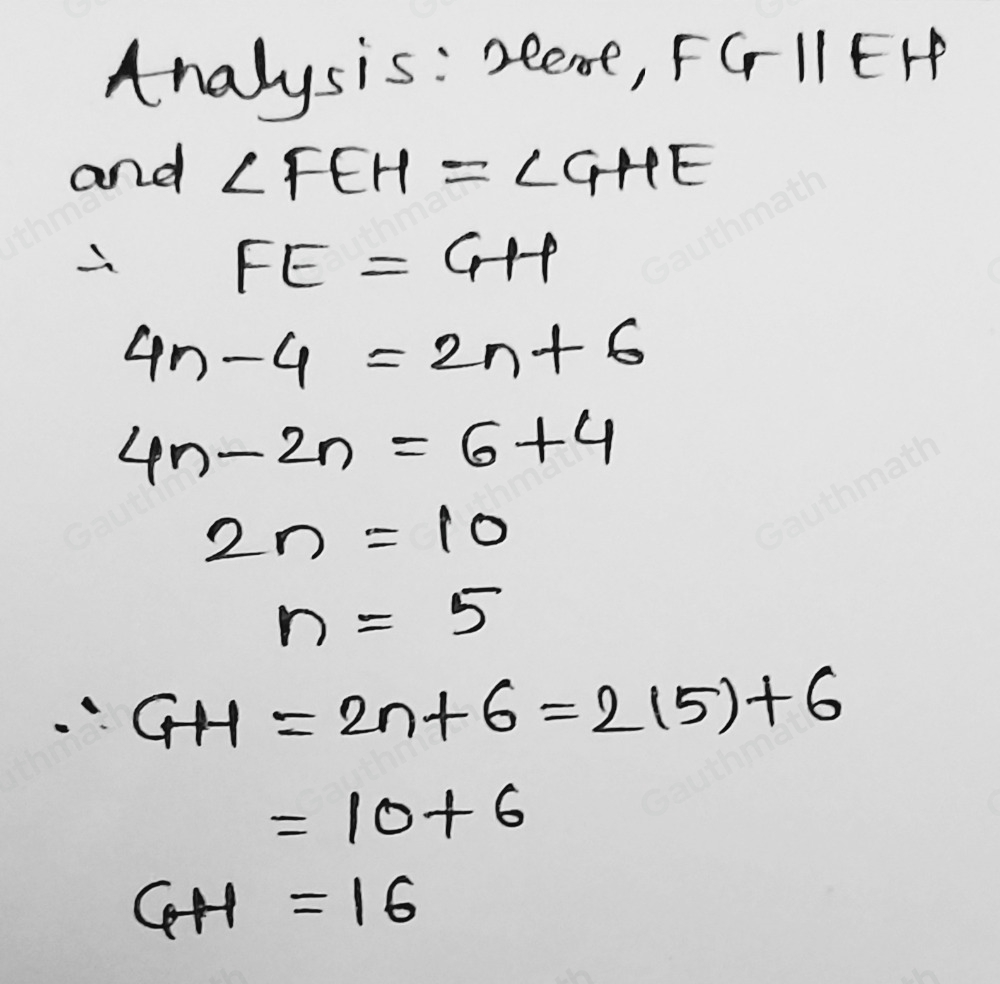 Analysis: Here, FG || EH
and ∠FEH = ∠GHE
∴ FE = GH
4n-4 = 2n+6
4n-2n = 6+4
2n = 10
n = 5
∴ GH = 2n+6 = 2(5)+6
= 10+6
GH = 16
Gauthmath